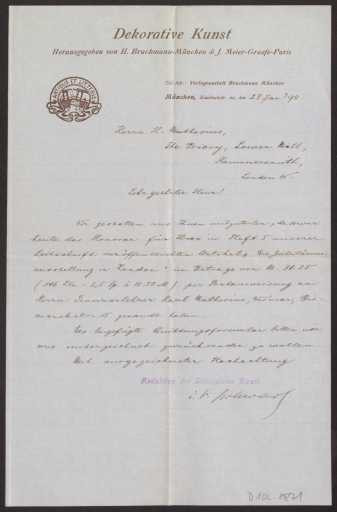 Dekorative Kunst
Herausgegeben von H. Bruckmann-München & J. Meier-Graefe-Paris
Verlagsanstalt Bruckmann München
München, 28 Jan 98
Herrn H. Muthesius,
The Priory, Lower Mall,
Hammersmith,
London W.
Sehr geehrter Herr!
Wir gestatten uns Ihnen mitzuteilen, dass wir
heute das Honorar für Ihren in Heft 5 unserer
Zeitschrift veröffentlichten Artikel
ausstellung in London" im Betrage von M.
per Postanweisung an
Herrn Karl Muthesius, Weimar,
gesandt haben.
Das beigefügte Quittungsformular bitten wir
uns unterzeichnet zurücksenden zu wollen.
Mit ausgezeichneter Hochachtung
Redaktion der Dekorativen Kunst
i. V.
D 102-1821